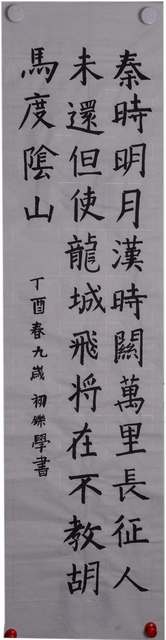 秦時明月漢時關萬里長征人
未還但使龍城飛将在不教胡
馬度陰山
丁酉春九歲初燦學書